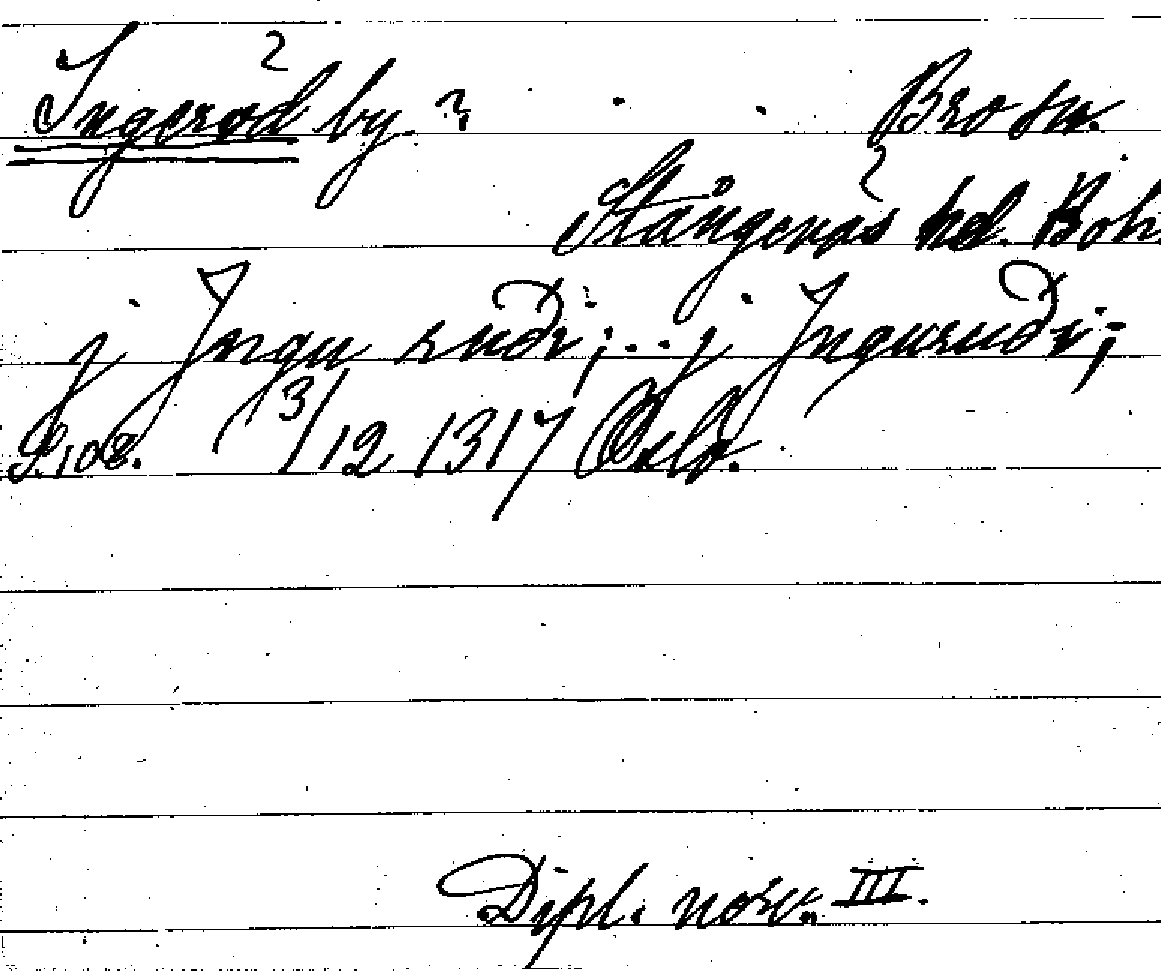 Ingeröd by. ?
Bro sn.
Stångenäs hd. Boh
j Jngu ruði; ... j Jnguruði;
S. 108. 13/12 1317 Oslo.
Dipl. norv. III.